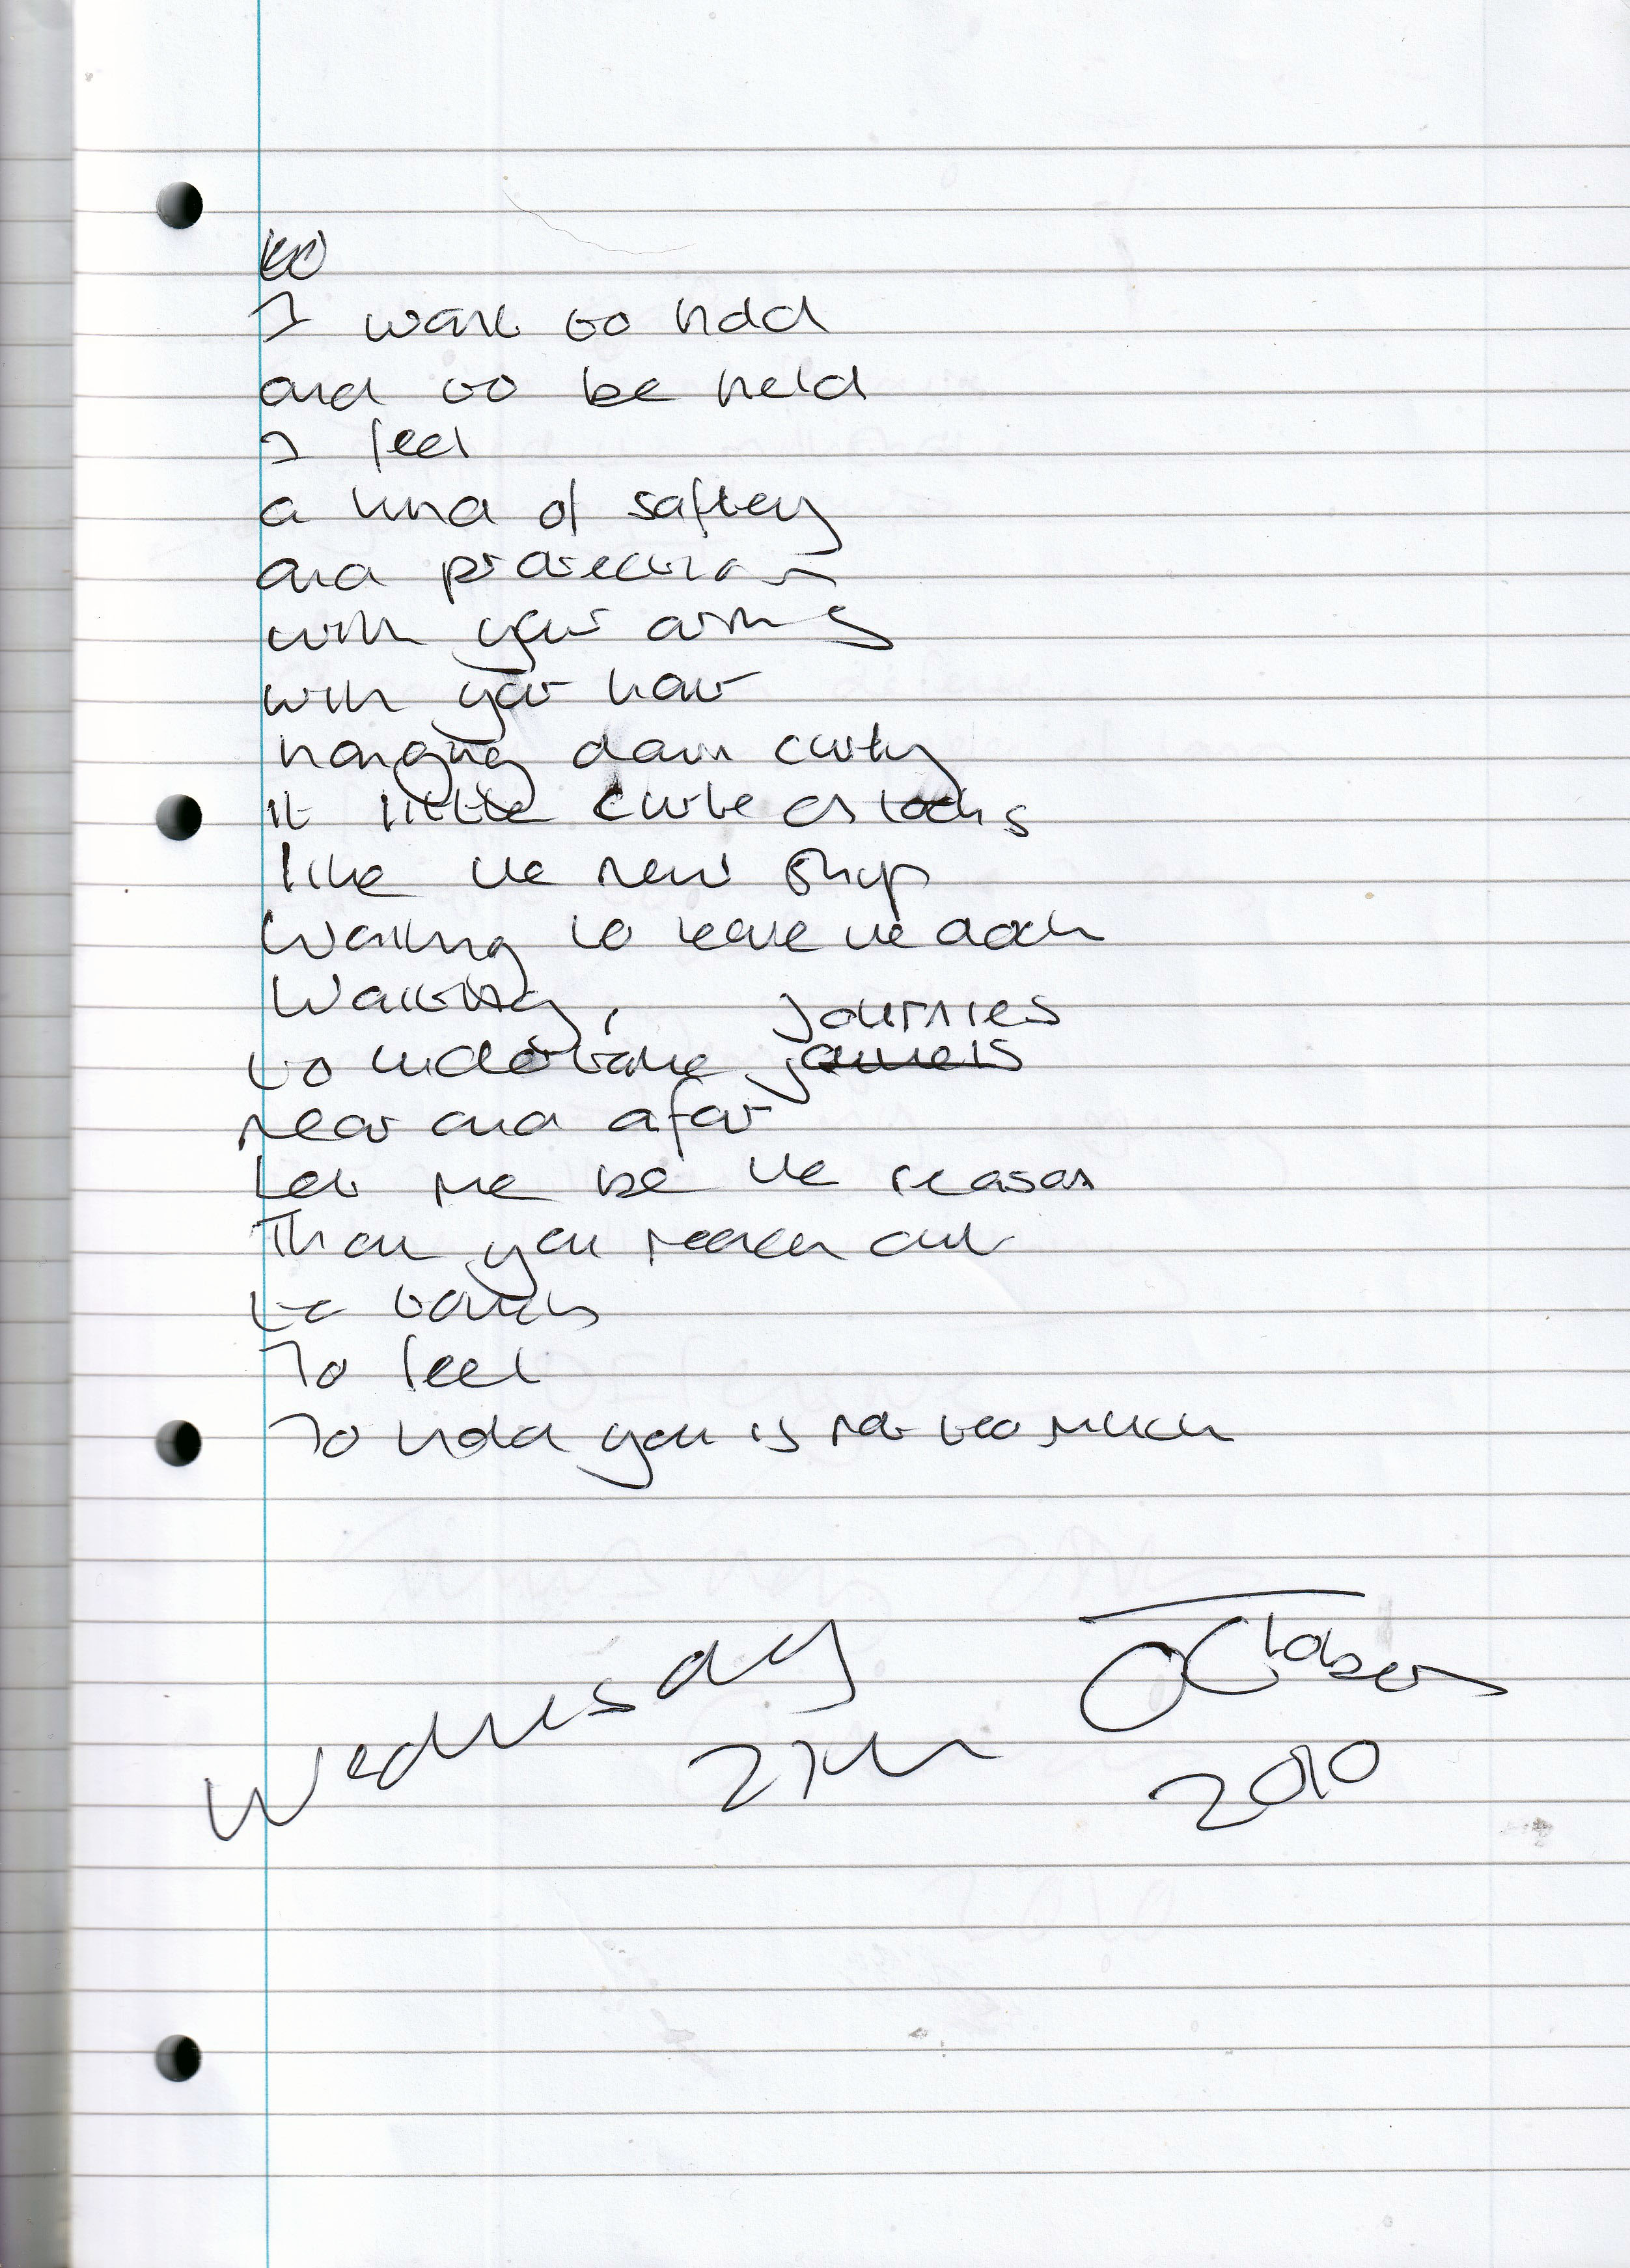 to
I want to hold
and to be held
I feel
a kind of saftey
and protection
with your arms
with your hair
hanging down curly
it little curle as locks
like the new ship
Waiting to leave the dock
Waiting,
to undertake journies
near and afar
Let me be the reason
That you reach out
to touch
To feel
To hold you is not too much
Wednesday 27th October 2010